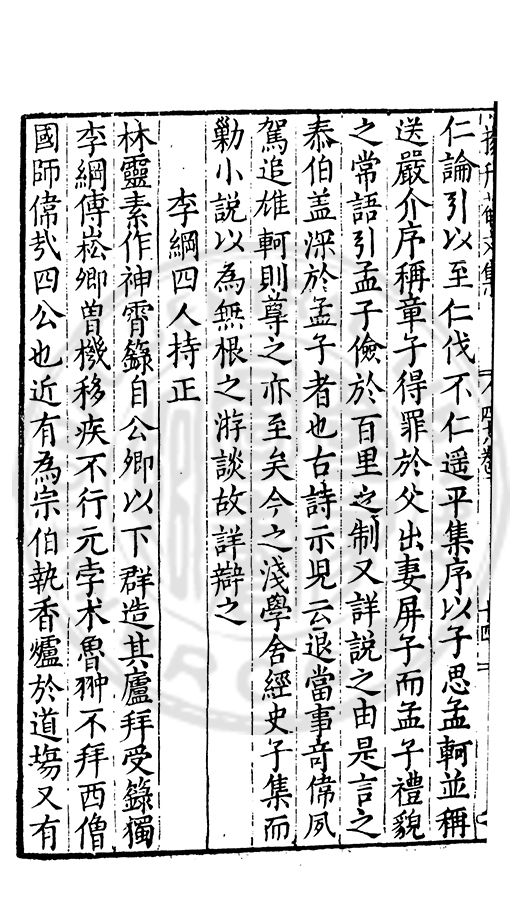 仁論引以至仁伐不仁遥平集序以子思孟軻並稱
送嚴介序稱章子得罪於父出妻屏子而孟子禮貌
之常語引孟子儉於百里之制又詳說之由是言之
泰伯盖深於孟子者也古詩示児云退當事竒偉夙
駕追雄軻則尊之亦至矣今之淺學舍經史子集而
勦小說以為無根之游談故詳辯之
李綱四人持正
林靈素作神霄籙自公卿以下群造其廬拜受籙獨
李綱傅崧卿曽機移疾不行元孛术魯翀不拜西僧
國師偉㢤四公也近有為宗伯執香爐於道塲又有